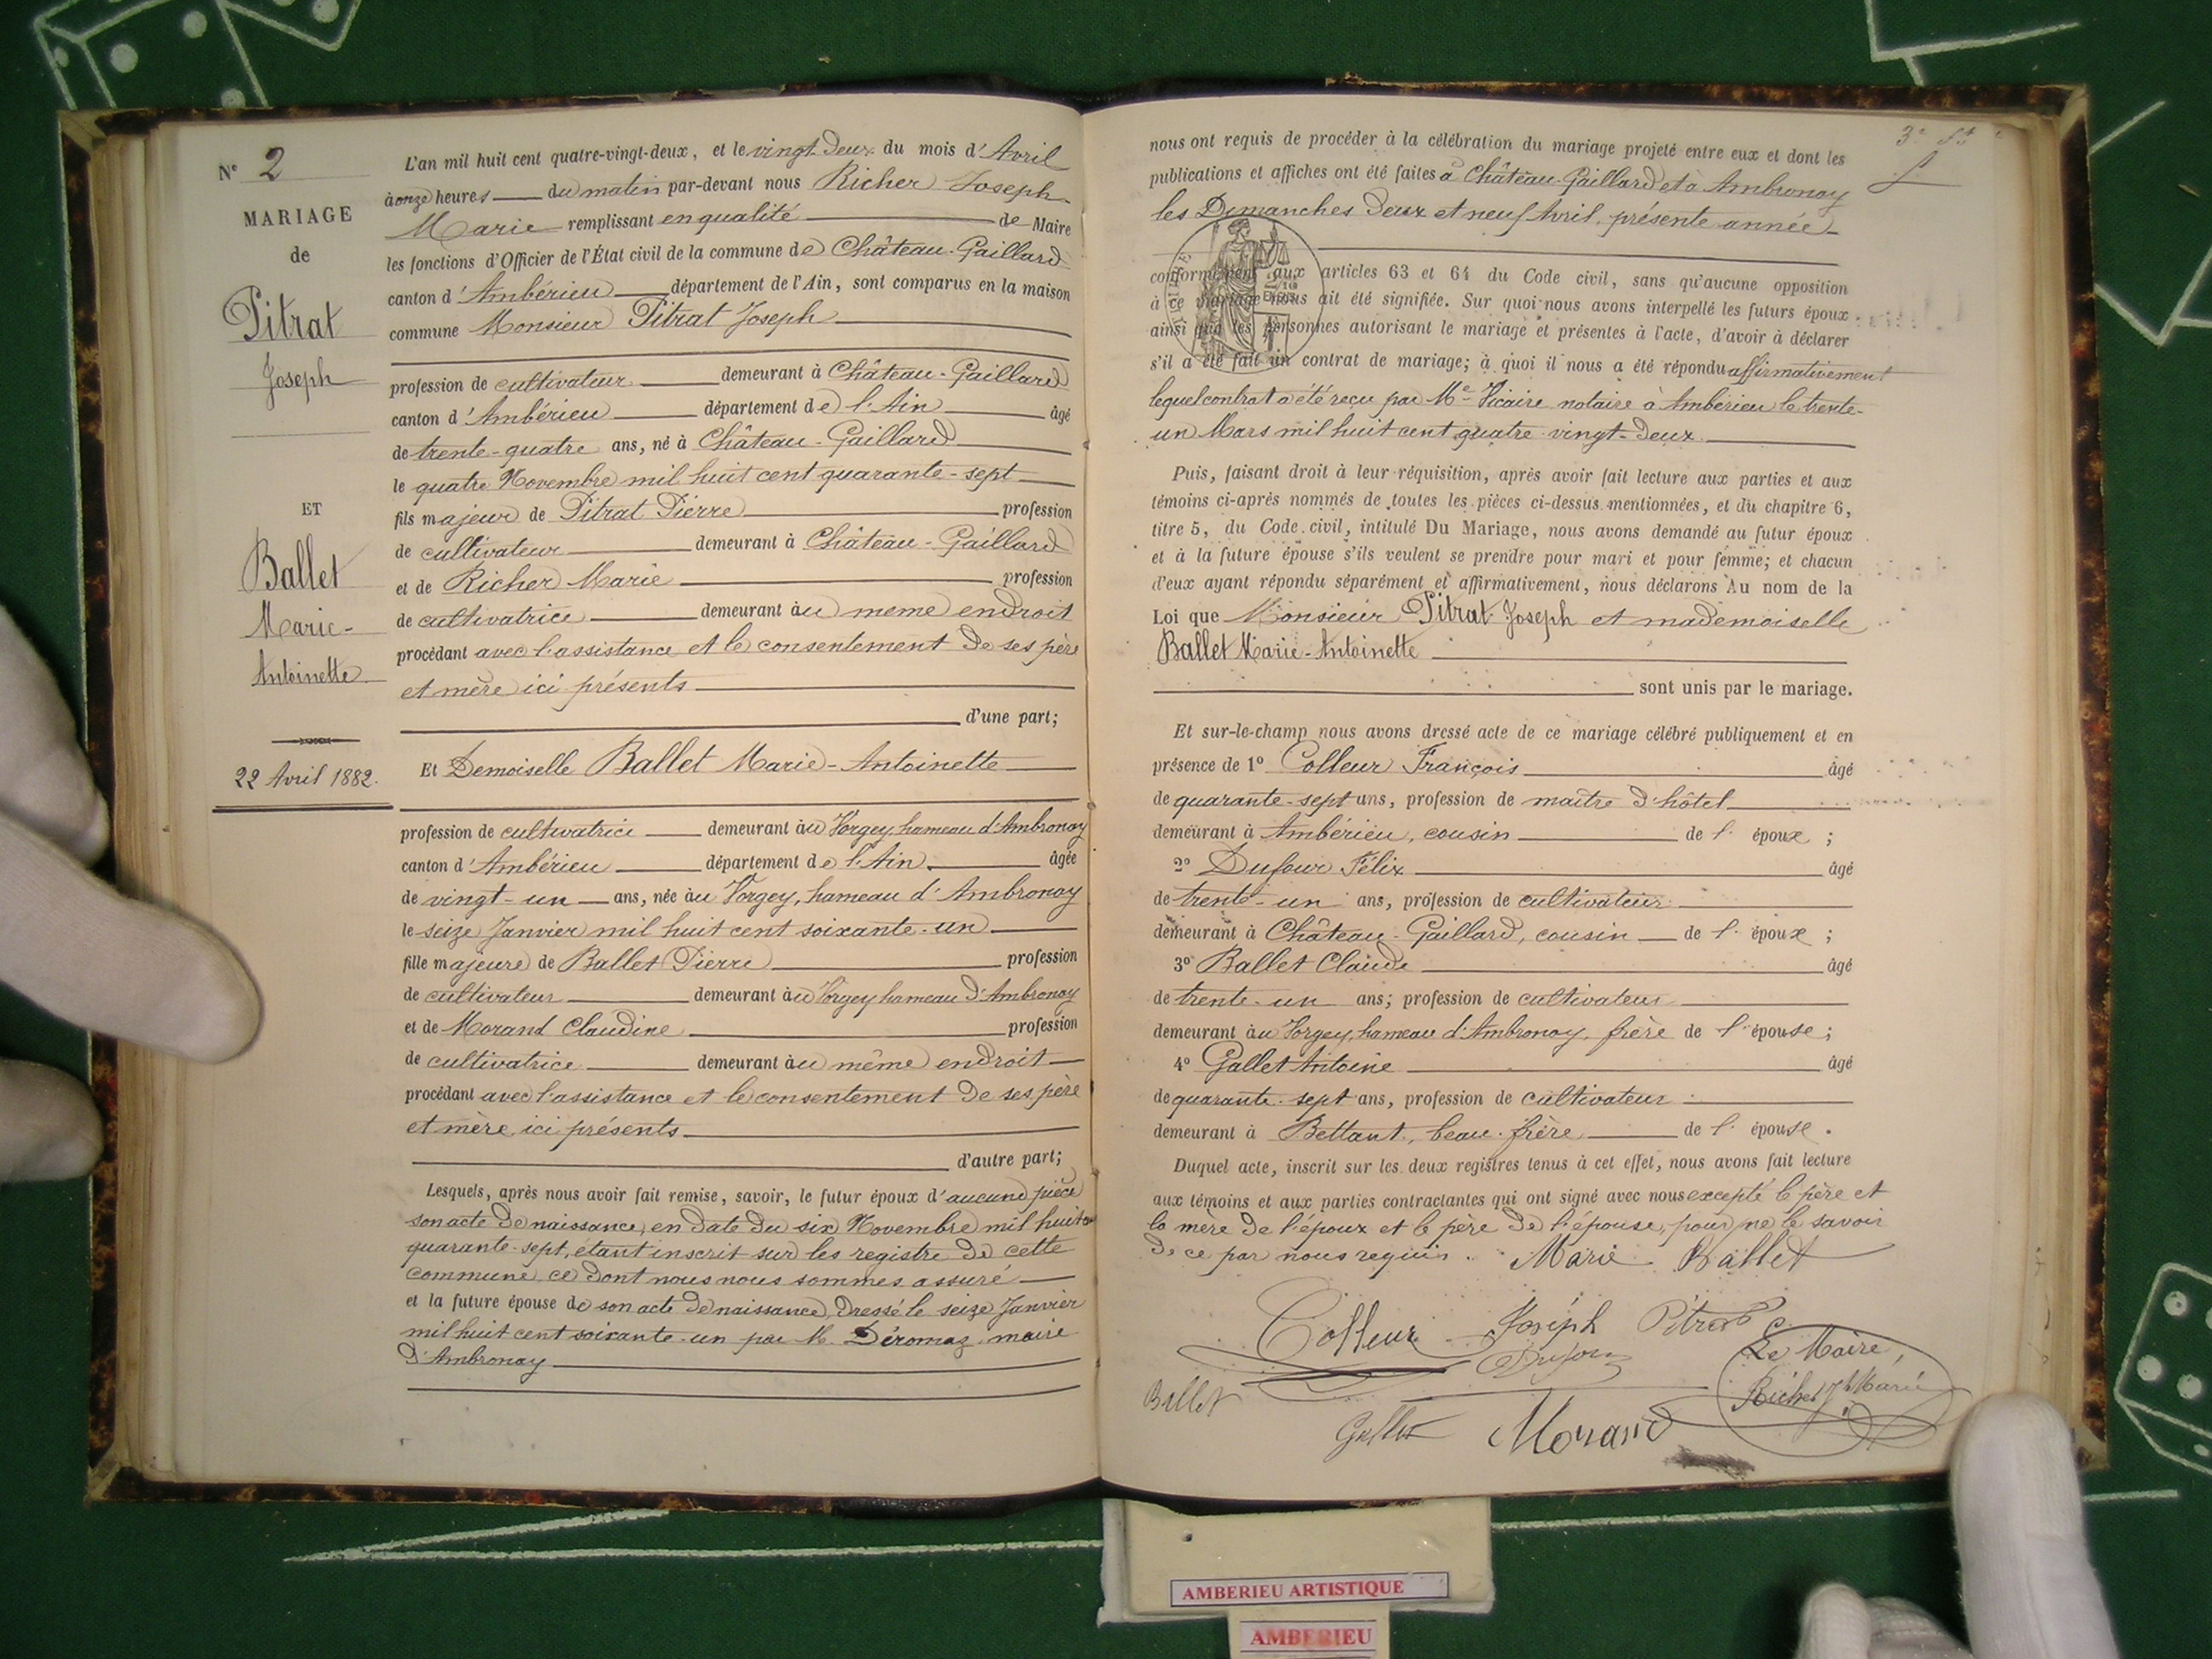 N° 2
MARIAGE
de
Pitrat
Joseph
ET
Ballet
Marie-
Antoinette
22 Avril 1882.
L'an mil huit cent quatre-vingt-deux, et le vingt-deux du mois d'Avril
à onze heures du matin par-devant nous Richer Joseph
Marie remplissant en qualité de Maire
les fonctions d'Officier de l'État civil de la commune de Château-Gaillard
canton d'Ambérieu département de l'Ain, sont comparus en la maison
commune Monsieur Pitrat Joseph
profession de cultivateur demeurant à Château-Gaillard
canton d'Ambérieu département de l'Ain âgé
de trente-quatre ans, né à Château-Gaillard
le quatre Novembre mil huit cent quarante-sept
fils majeur de Pitrat Pierre profession
de cultivateur demeurant à Château-Gaillard
et de Richer Marie profession
de cultivatrice demeurant au même endroit
procédant avec l'assistance et le consentement de ses père
et mère ici présents
d'une part;
Et Demoiselle Ballet Marie-Antoinette
profession de cultivatrice demeurant au Vorgey, hameau d'Ambronay
canton d'Ambérieu département de l'Ain âgée
de vingt-un ans, née au Vorgey, hameau d'Ambronay
le seize Janvier mil huit cent soixante-un
fille majeure de Ballet Pierre profession
de cultivateur demeurant au Vorgey hameau d'Ambronay
et de Morand Claudine profession
de cultivatrice demeurant au même endroit
procédant avec l'assistance et le consentement de ses père
et mère ici présents
d'autre part;
Lesquels, après nous avoir fait remise, savoir, le futur époux d'aucune pièce
son acte de naissance, en date du six Novembre mil huit c
quarante-sept, étant inscrit sur les registre de cette
commune, ce dont nous nous sommes assuré
et la future épouse de son acte de naissance, dressé le seize Janvier
mil huit cent soixante-un par M. Déromaz maire
d'Ambronay
3e
nous ont requis de procéder à la célébration du mariage projeté entre eux et dont les
publications et affiches ont été faites à Château-Gaillard et à Ambronay
les Dimanches deux et neuf Avril, présente année
conformément aux articles 63 et 64 du Code civil, sans qu'aucune opposition
à ce mariage nous ait été signifiée. Sur quoi nous avons interpellé les futurs époux
ainsi que les personnes autorisant le mariage et présentes à l'acte, d'avoir à déclarer
s'il a été fait un contrat de mariage; à quoi il nous a été répondu affirmativement
lequel contrat a été reçu par Me Vicaire notaire à Ambérieu le trente-
un Mars mil huit cent quatre-vingt-deux
Puis, faisant droit à leur réquisition, après avoir fait lecture aux parties et aux
témoins ci-après nommés de toutes les pièces ci-dessus mentionnées, et du chapitre 6,
titre 5, du Code civil, intitulé Du Mariage, nous avons demandé au futur époux
et à la future épouse s'ils veulent se prendre pour mari et pour femme; et chacun
d'eux ayant répondu séparément et affirmativement, nous déclarons Au nom de la
Loi que Monsieur Pitrat Joseph et mademoiselle
Ballet Marie-Antoinette
sont unis par le mariage.
Et sur-le-champ nous avons dressé acte de ce mariage célébré publiquement et en
présence de 1° Colleur François âgé
de quarante-sept ans, profession de maître d'hôtel
demeurant à Ambérieu, cousin de l'époux ;
2° Dufour Félix âgé
de trente-un ans, profession de cultivateur
demeurant à Château-Gaillard, cousin de l'époux ;
3° Ballet Claude âgé
de trente-un ans; profession de cultivateur
demeurant au Vorgey, hameau d'Ambronay, frère de l'épouse ;
4° Gallet Antoine âgé
de quarante-sept ans, profession de cultivateur
demeurant à Bettant, beau-frère de l'épouse.
Duquel acte, inscrit sur les deux registres tenus à cet effet, nous avons fait lecture
aux témoins et aux parties contractantes qui ont signé avec nous excepté le père et
la mère de l'époux et le père de l'épouse, pour ne le savoir
de ce par nous requis. Marie Ballet
Colleur Joseph Pitrat
Dufour Le Maire,
Ballet Richer Jh Marie
Gallet Morand
AMBERIEU ARTISTIQUE
AMBERIEU